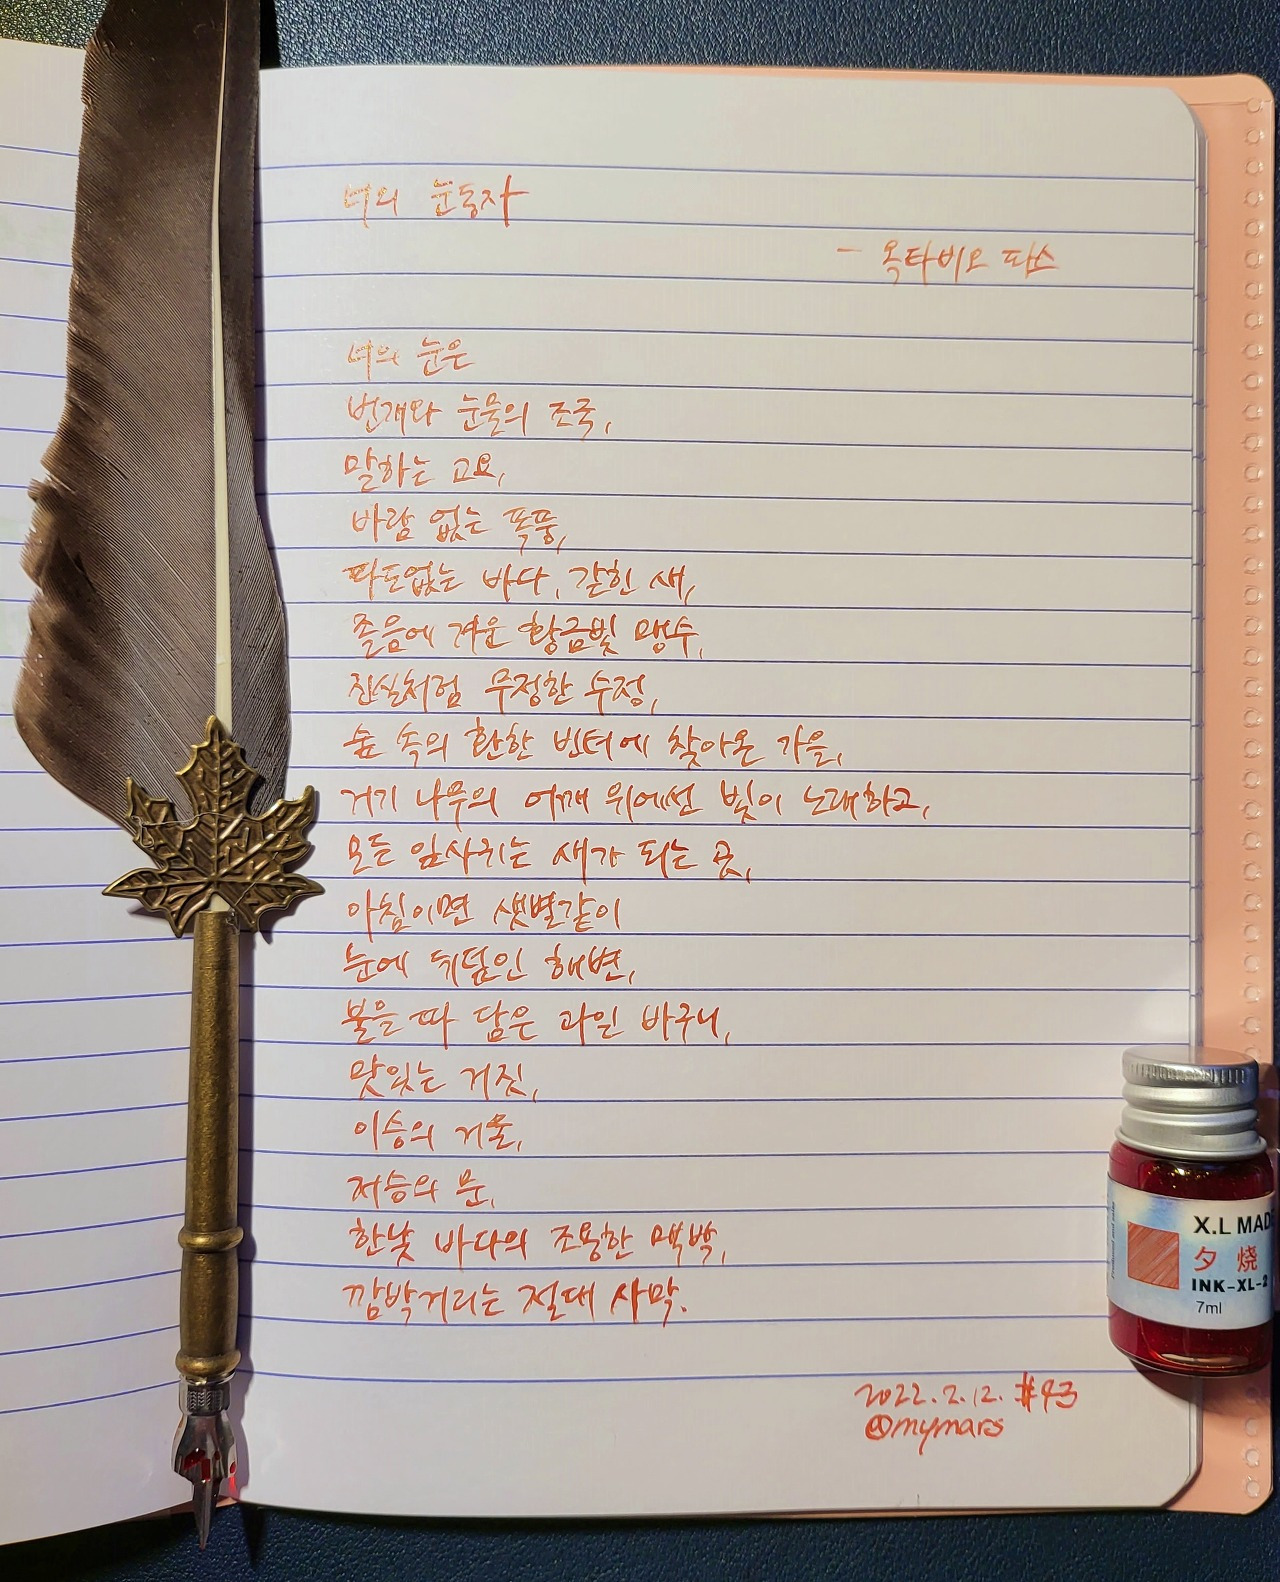 너의 눈동자
- 옥타비오 파스
너의 눈은
번개와 눈물의 조국,
말하는 고요,
바람 없는 폭풍,
파도없는 바다, 갇힌 새,
졸음에 겨운 황금빛 맹수,
진실처럼 무정한 수정,
숲 속의 환한 빈터에 찾아온 가을,
거기 나무의 어깨 위에선 빛이 노래하고,
모든 잎사귀는 새가 되는 곳,
아침이면 샛별같이
눈에 뒤덮인 해변,
불을 따 담은 과일 바구니,
맛있는 거짓,
이승의 거울,
저승의 문,
한낮 바다의 조용한 맥박,
깜박거리는 절대 사막.
2022.2.12. #43
@mymars
X.L MAD
夕烧
INK-XL-2
7ml